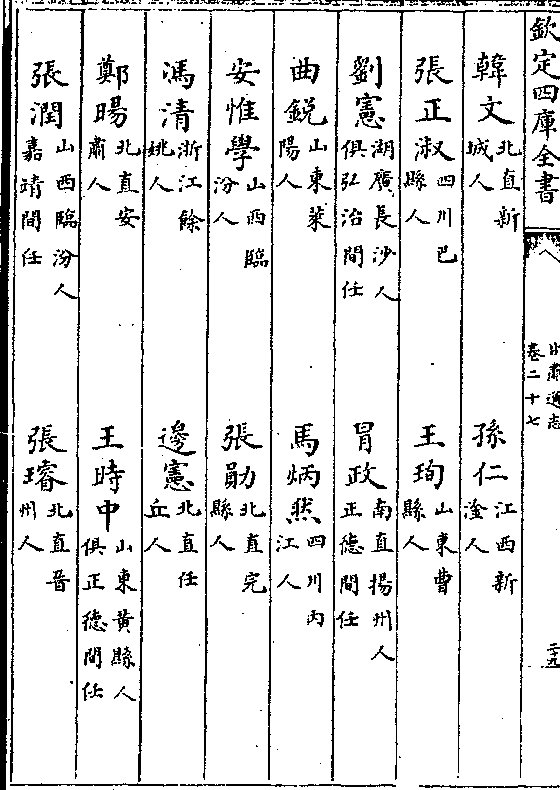 欽定四庫全書
甘肅通志
卷二十七
二十九
韓文北直新城人
孫仁江西新淦人
張正淑四川巴縣人
王珣山東曹縣人
劉憲湖廣長沙人俱弘治間任
冐政南直揚州人正德間任
曲鋭山東萊陽人
馬炳然四川内江人
安惟學山西臨汾人
張勛北直完縣人
馮清浙江餘姚人
邊憲北直任丘人
鄭暘北直安肅人
王時中山東黄縣人俱正德間任
張潤山西臨汾人嘉靖間任
張璿北直晉州人